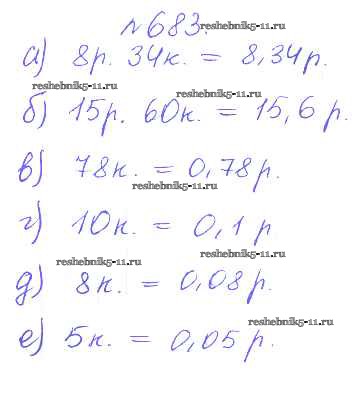 №683.
reshebnik5-11.ru
а) 8р. 34к. = 8,34р.
reshebnik5-11.ru
reshebnik5-11.ru
б) 15р. 60к. = 15,6 р.
в) 78к. = 0,78р.
reshebnik5-11.ru
г) 10к. = 0,1 р
reshebnik5-11.ru
reshebnik5-11.ru
д) 8к. = 0,08р.
reshebnik5-11.ru
е) 5к. = 0,05р.